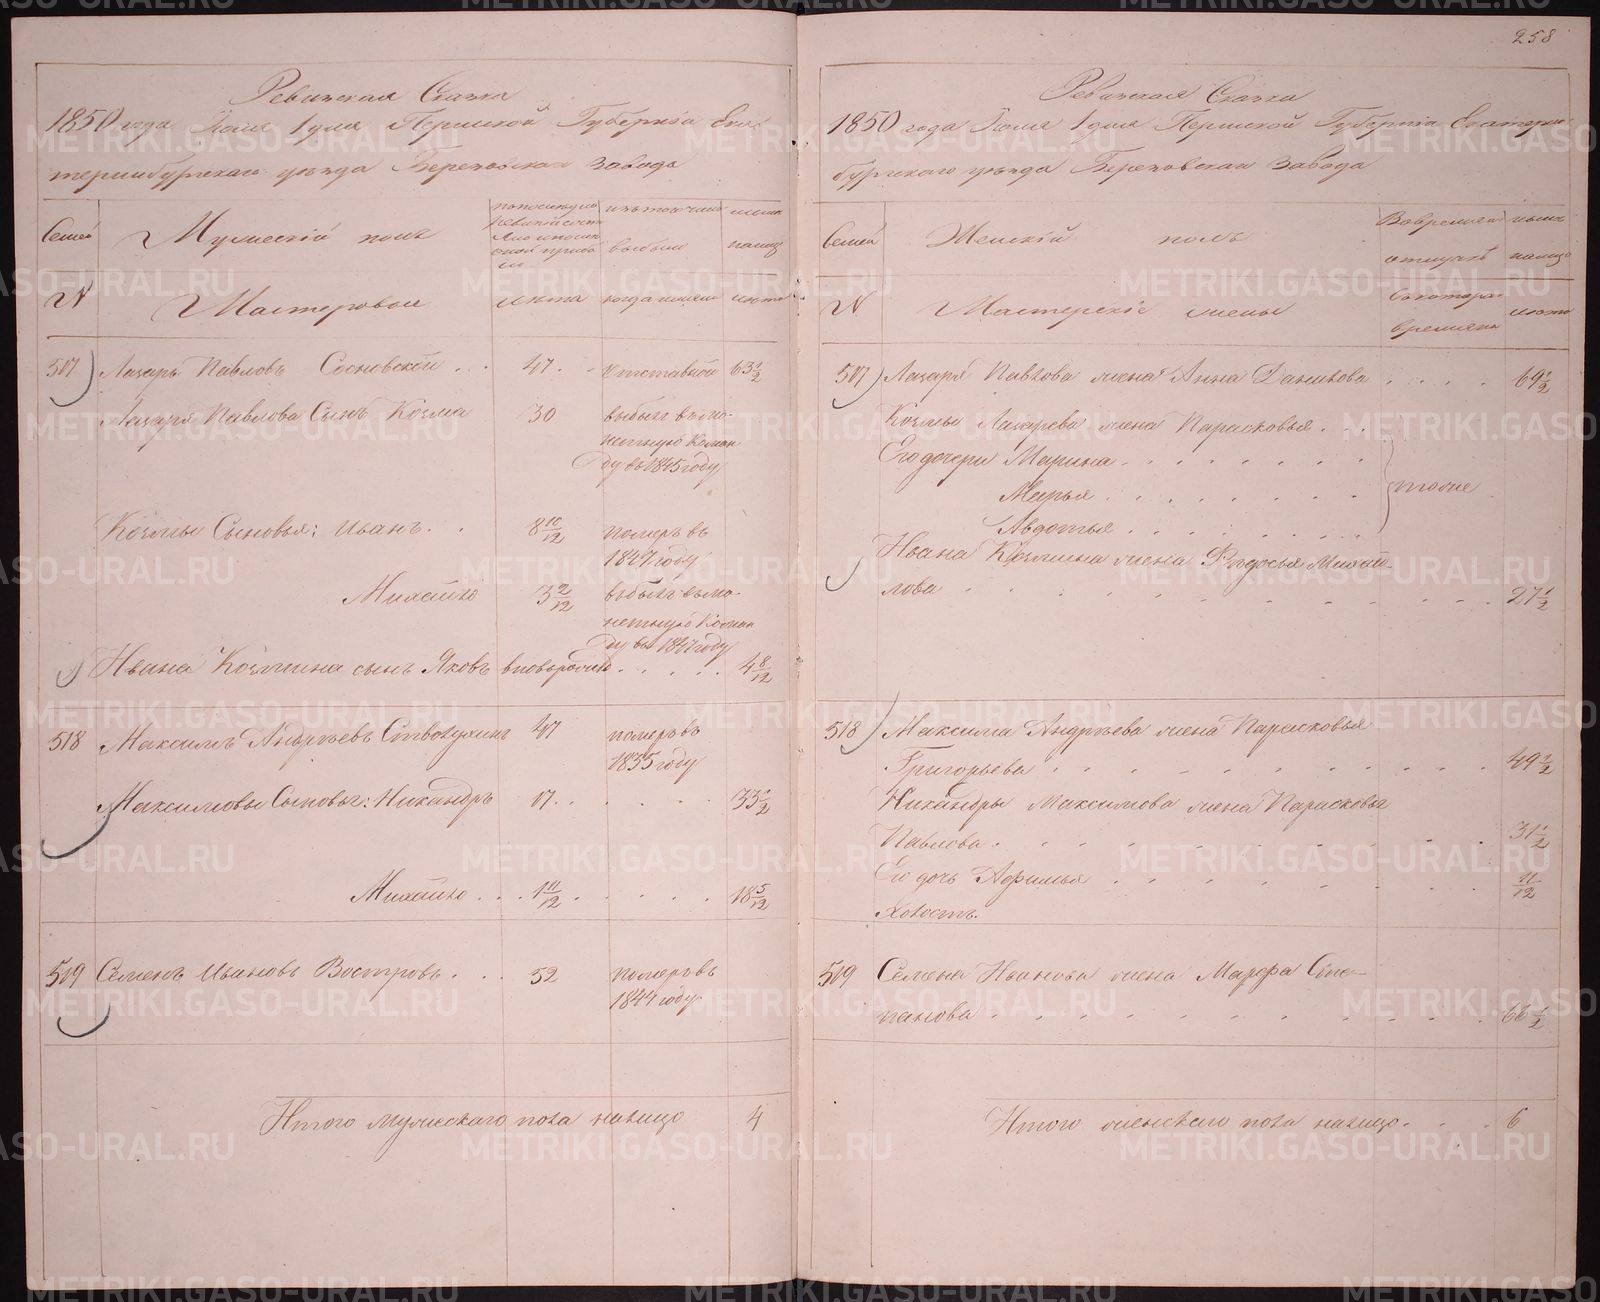 258
Ревизская Сказка
1850 года Июля 1 дня Пермской Губерніи Ека-
теринбургскаго уезда Березовскаго завода
Семей
Мужескій полъ
изъ того числа
выбыли
ныне
налицо
№
Мастеровые
лета
когда именно
лета
507 Лазарь Павловъ Сосновской . . 47 . отставной 63 1/2
Лазаря Павлова Сынъ Козма 30 выбылъ въ мо-
нетную Коман
ду въ 1845 году
Козмы Сыновья: Иванъ . . 8 10/12 померъ въ
1847 году
Михайло 3 2/12 выбылъ въ мо-
нетную Коман
ду въ 1847 году
Ивана Козмина сынъ Яковъ вновьрожд. . . . . 4 8/12
518 Максимъ Андреевъ 47 померъ въ
1835 году
Максимовы Сыновья: Никандръ 17 . . . . . 33 1/2
Михайло . . . 1 11/12 . . . . . 18 5/12
519 Семенъ Ивановъ Востровъ . . . 52 померъ въ
1844 году
Итого мужескаго пола налицо 4
Ревизская Сказка
1850 года Июля 1 дня Пермской Губерніи Екатерин-
бургскаго уезда Березовскаго завода
Семей
Женскій полъ
Во временной
отлучке
ныне
налицо
№
Мастерскіе жены
съ котораго
времени
лета
507 Лазаря Павлова жена Анна Данилова . . . . 69 1/2
Козмы Лазарева жена Парасковья . . .
Его дочери Марина . . . . . . .
Марья . . . . . . .
тоже
Авдотья . . . . . . .
Ивана Козмина жена Федосья Михай-
лова . . . . . . . . . . 27 1/2
518 Максима Андреева жена Парасковья
Григорьева . . . . . . . . . 49 1/2
Никандры Максимова жена Парасковья
Павлова . . . . . . . . . . 31 1/2
Его дочь Афимья . . . . . . . . 11/12
Холостъ.
519 Семена Иванова жена Марфа Сте-
панова . . . . . . . . . . 66 1/2
Итого женскаго пола налицо . . . 6
METRIKI.GASO-URAL.RU